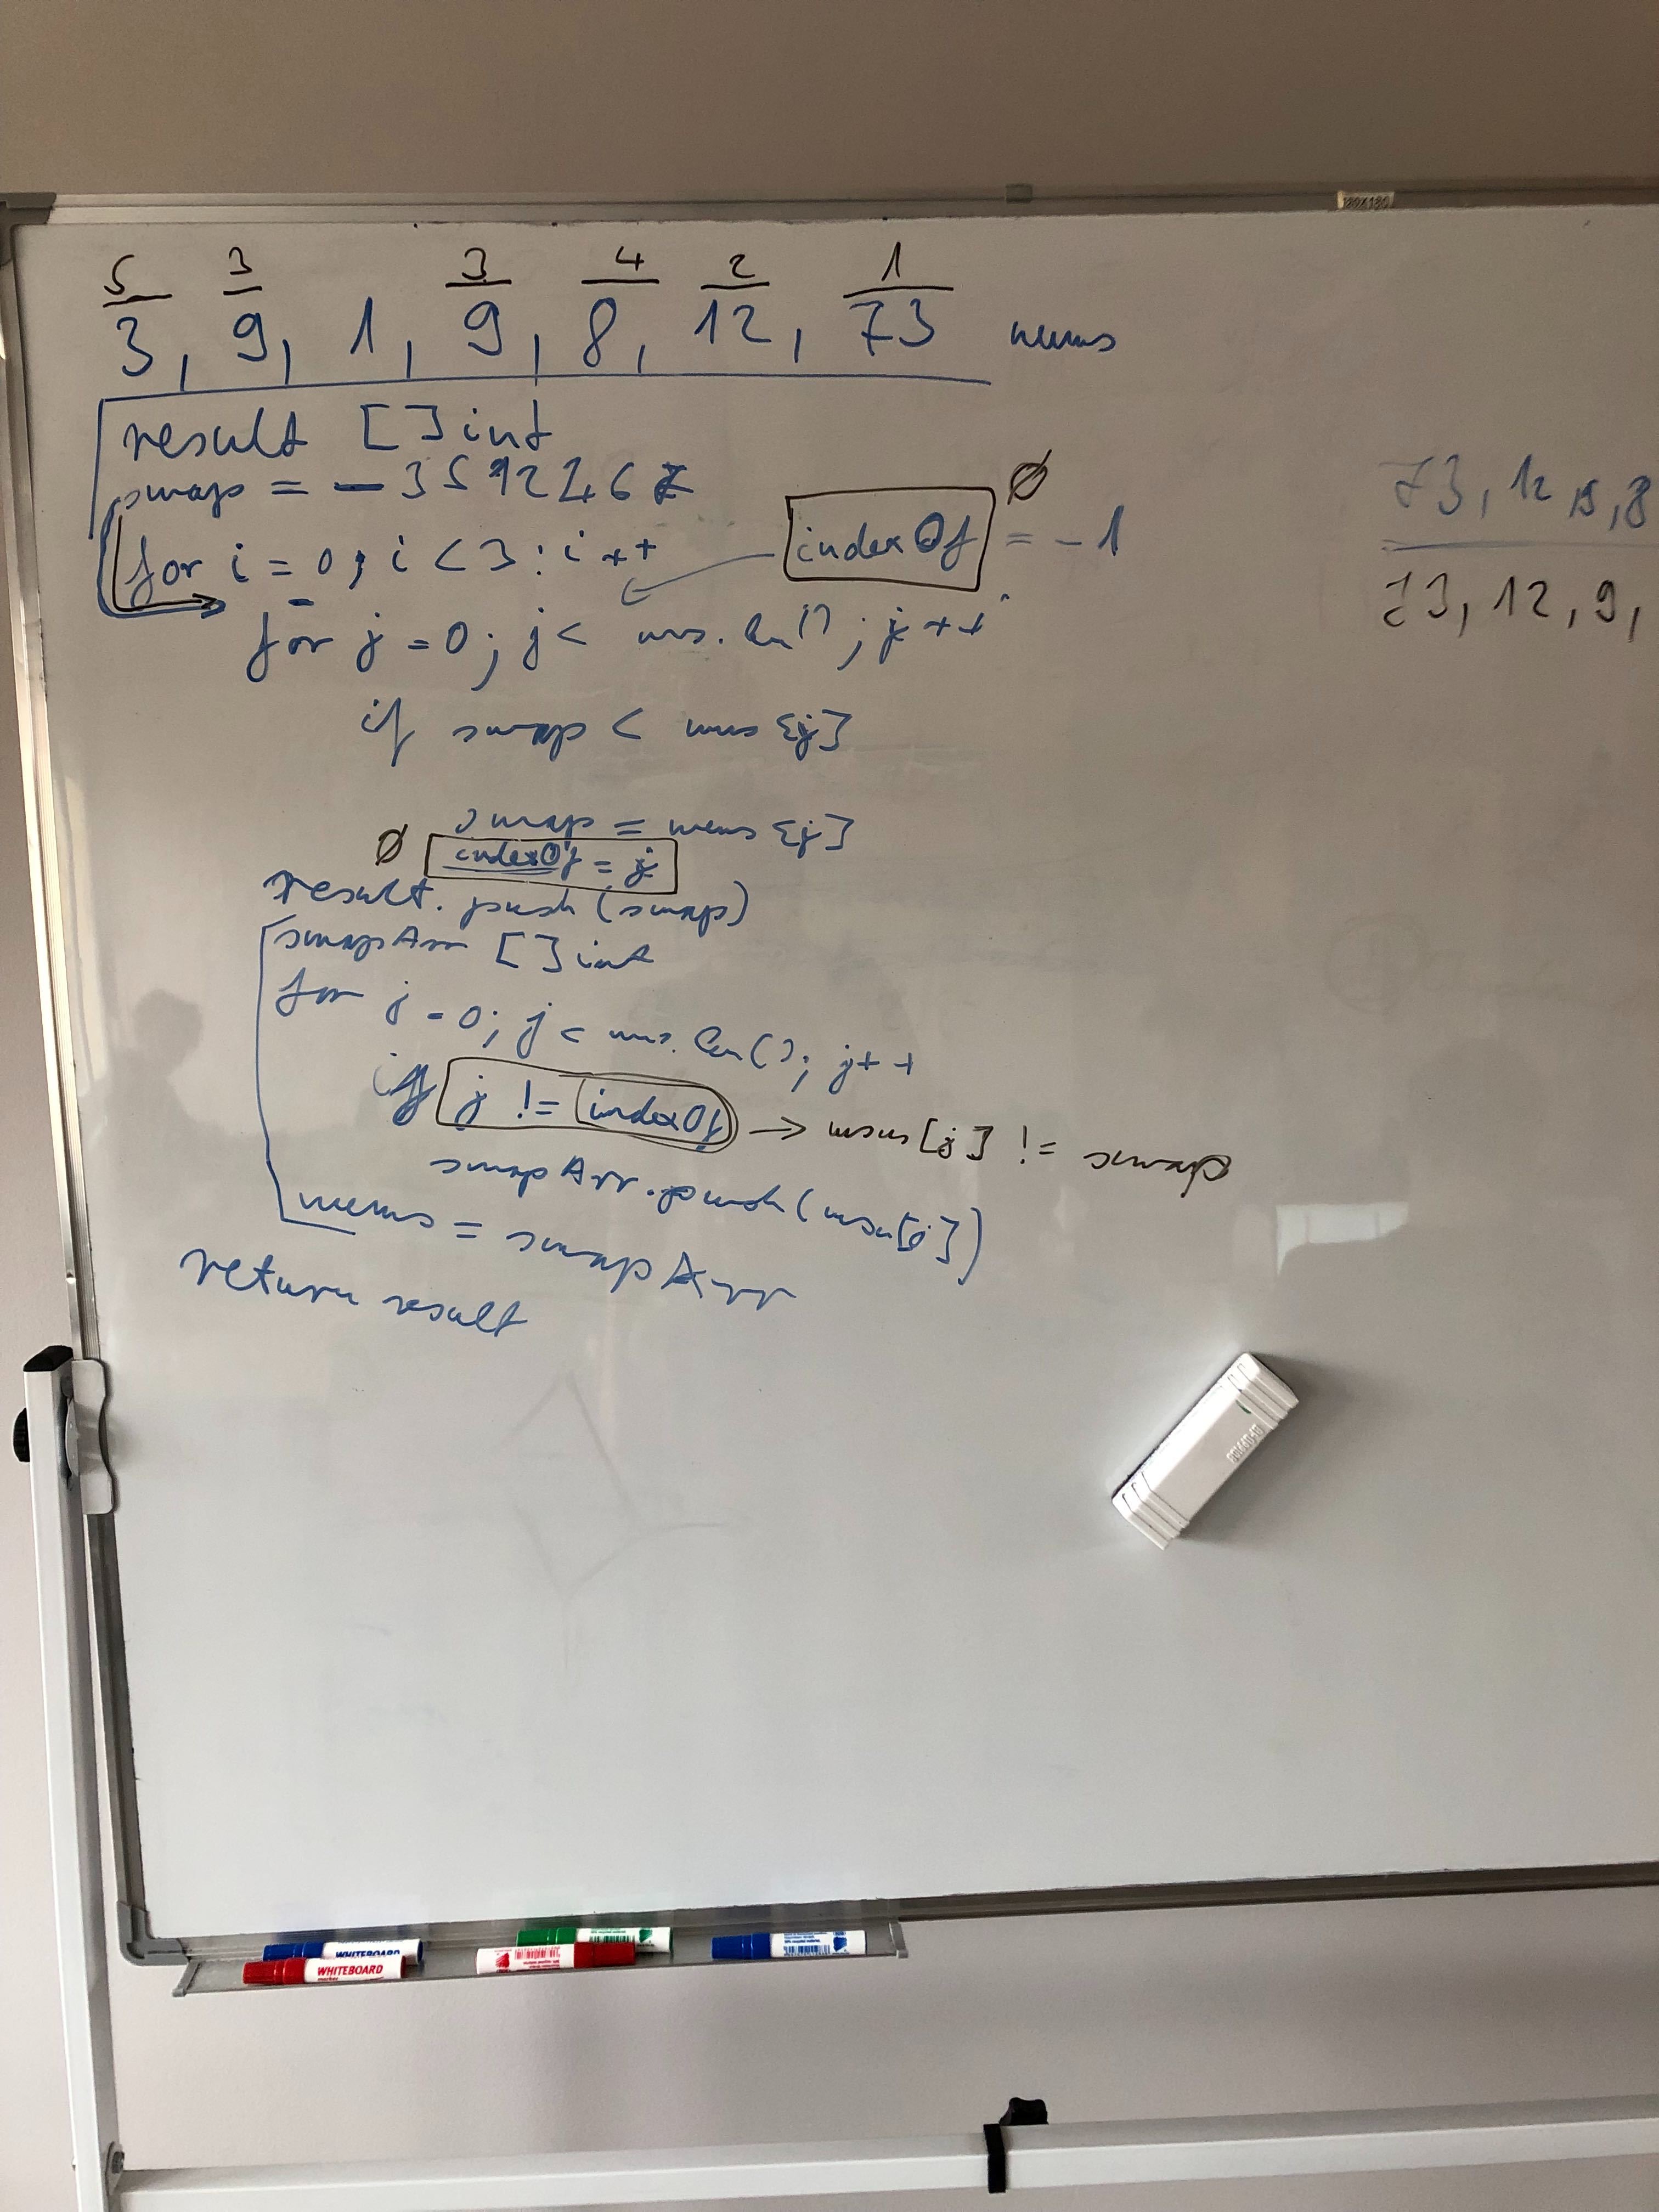 180X180
5 3 3 4 2 1
3, 9, 1, 9, 8, 12, 73 nums
result [] int
swap =
indexOf = -1
Ø
for i = 0; i < 3; i++
for j = 0; j < nums.len(); j++
if swap < nums[j]
swap = nums[j]
Ø indexOf = j
result.push(swap)
swapArr [] int
for j = 0; j < nums.len(); j++
if j != indexOf → nums[j] != swap
swapArr.push(nums[j])
nums = swapArr
return result
73, 12, 9, 8
73, 12, 9,
WHITEBOARD
WHITEBOARD
marker